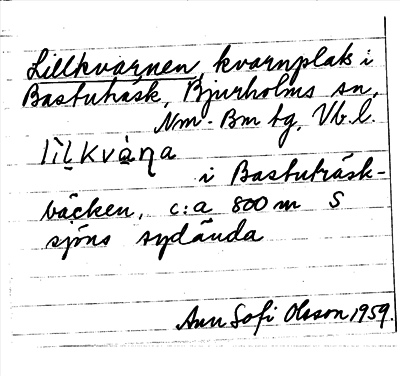 Lillkvarnen, kvarnplats i
Bastuträsk, Bjurholms sn,
Nm - Bm tg, Vb. l.
lìl̥kvàṇa
i Bastuträsk-
bäcken, c:a 800 m S
sjöns sydända
Ann Sofi Olsson, 1959.